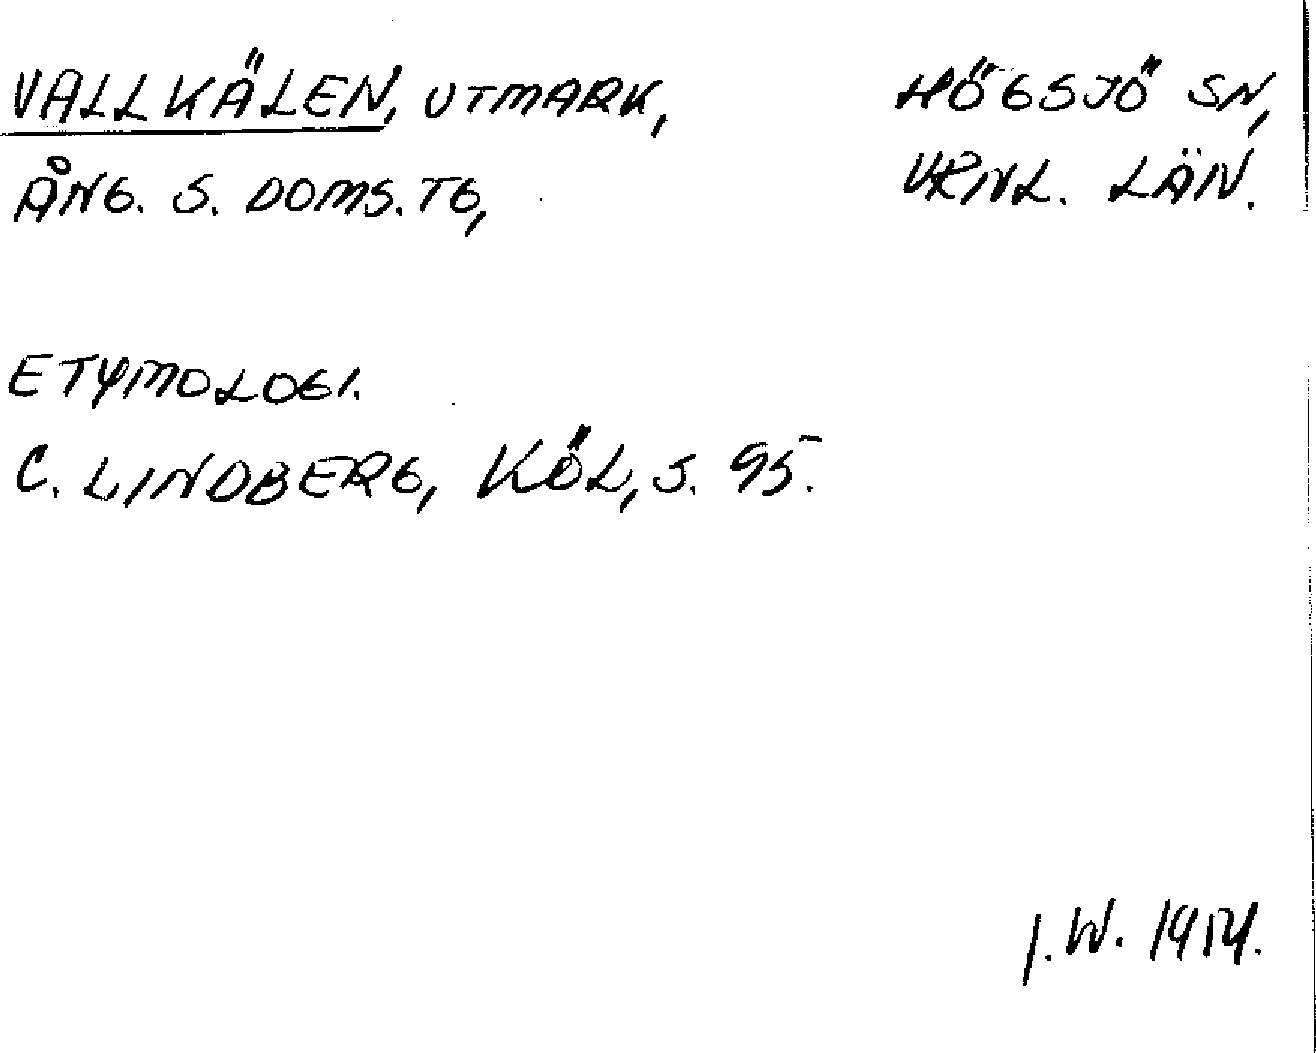 VALLKÄLEN, UTMARK, HÖGSJÖ SN,
ÅNG. S. DOMS. TG, VRNL. LÄN.
ETYMOLOGI.
C. LINDBERG, KÖL, S. 95.
J. W. 1954.